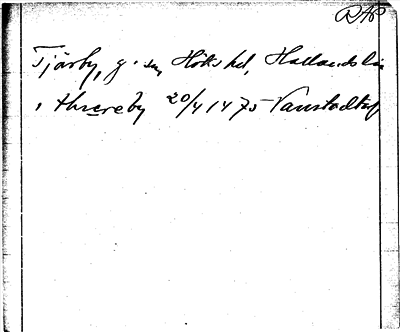 RAP
Tjärby, g. sn, Höks hd, Hallands län
i thræreby 20/4 1475 Vanstadtorp